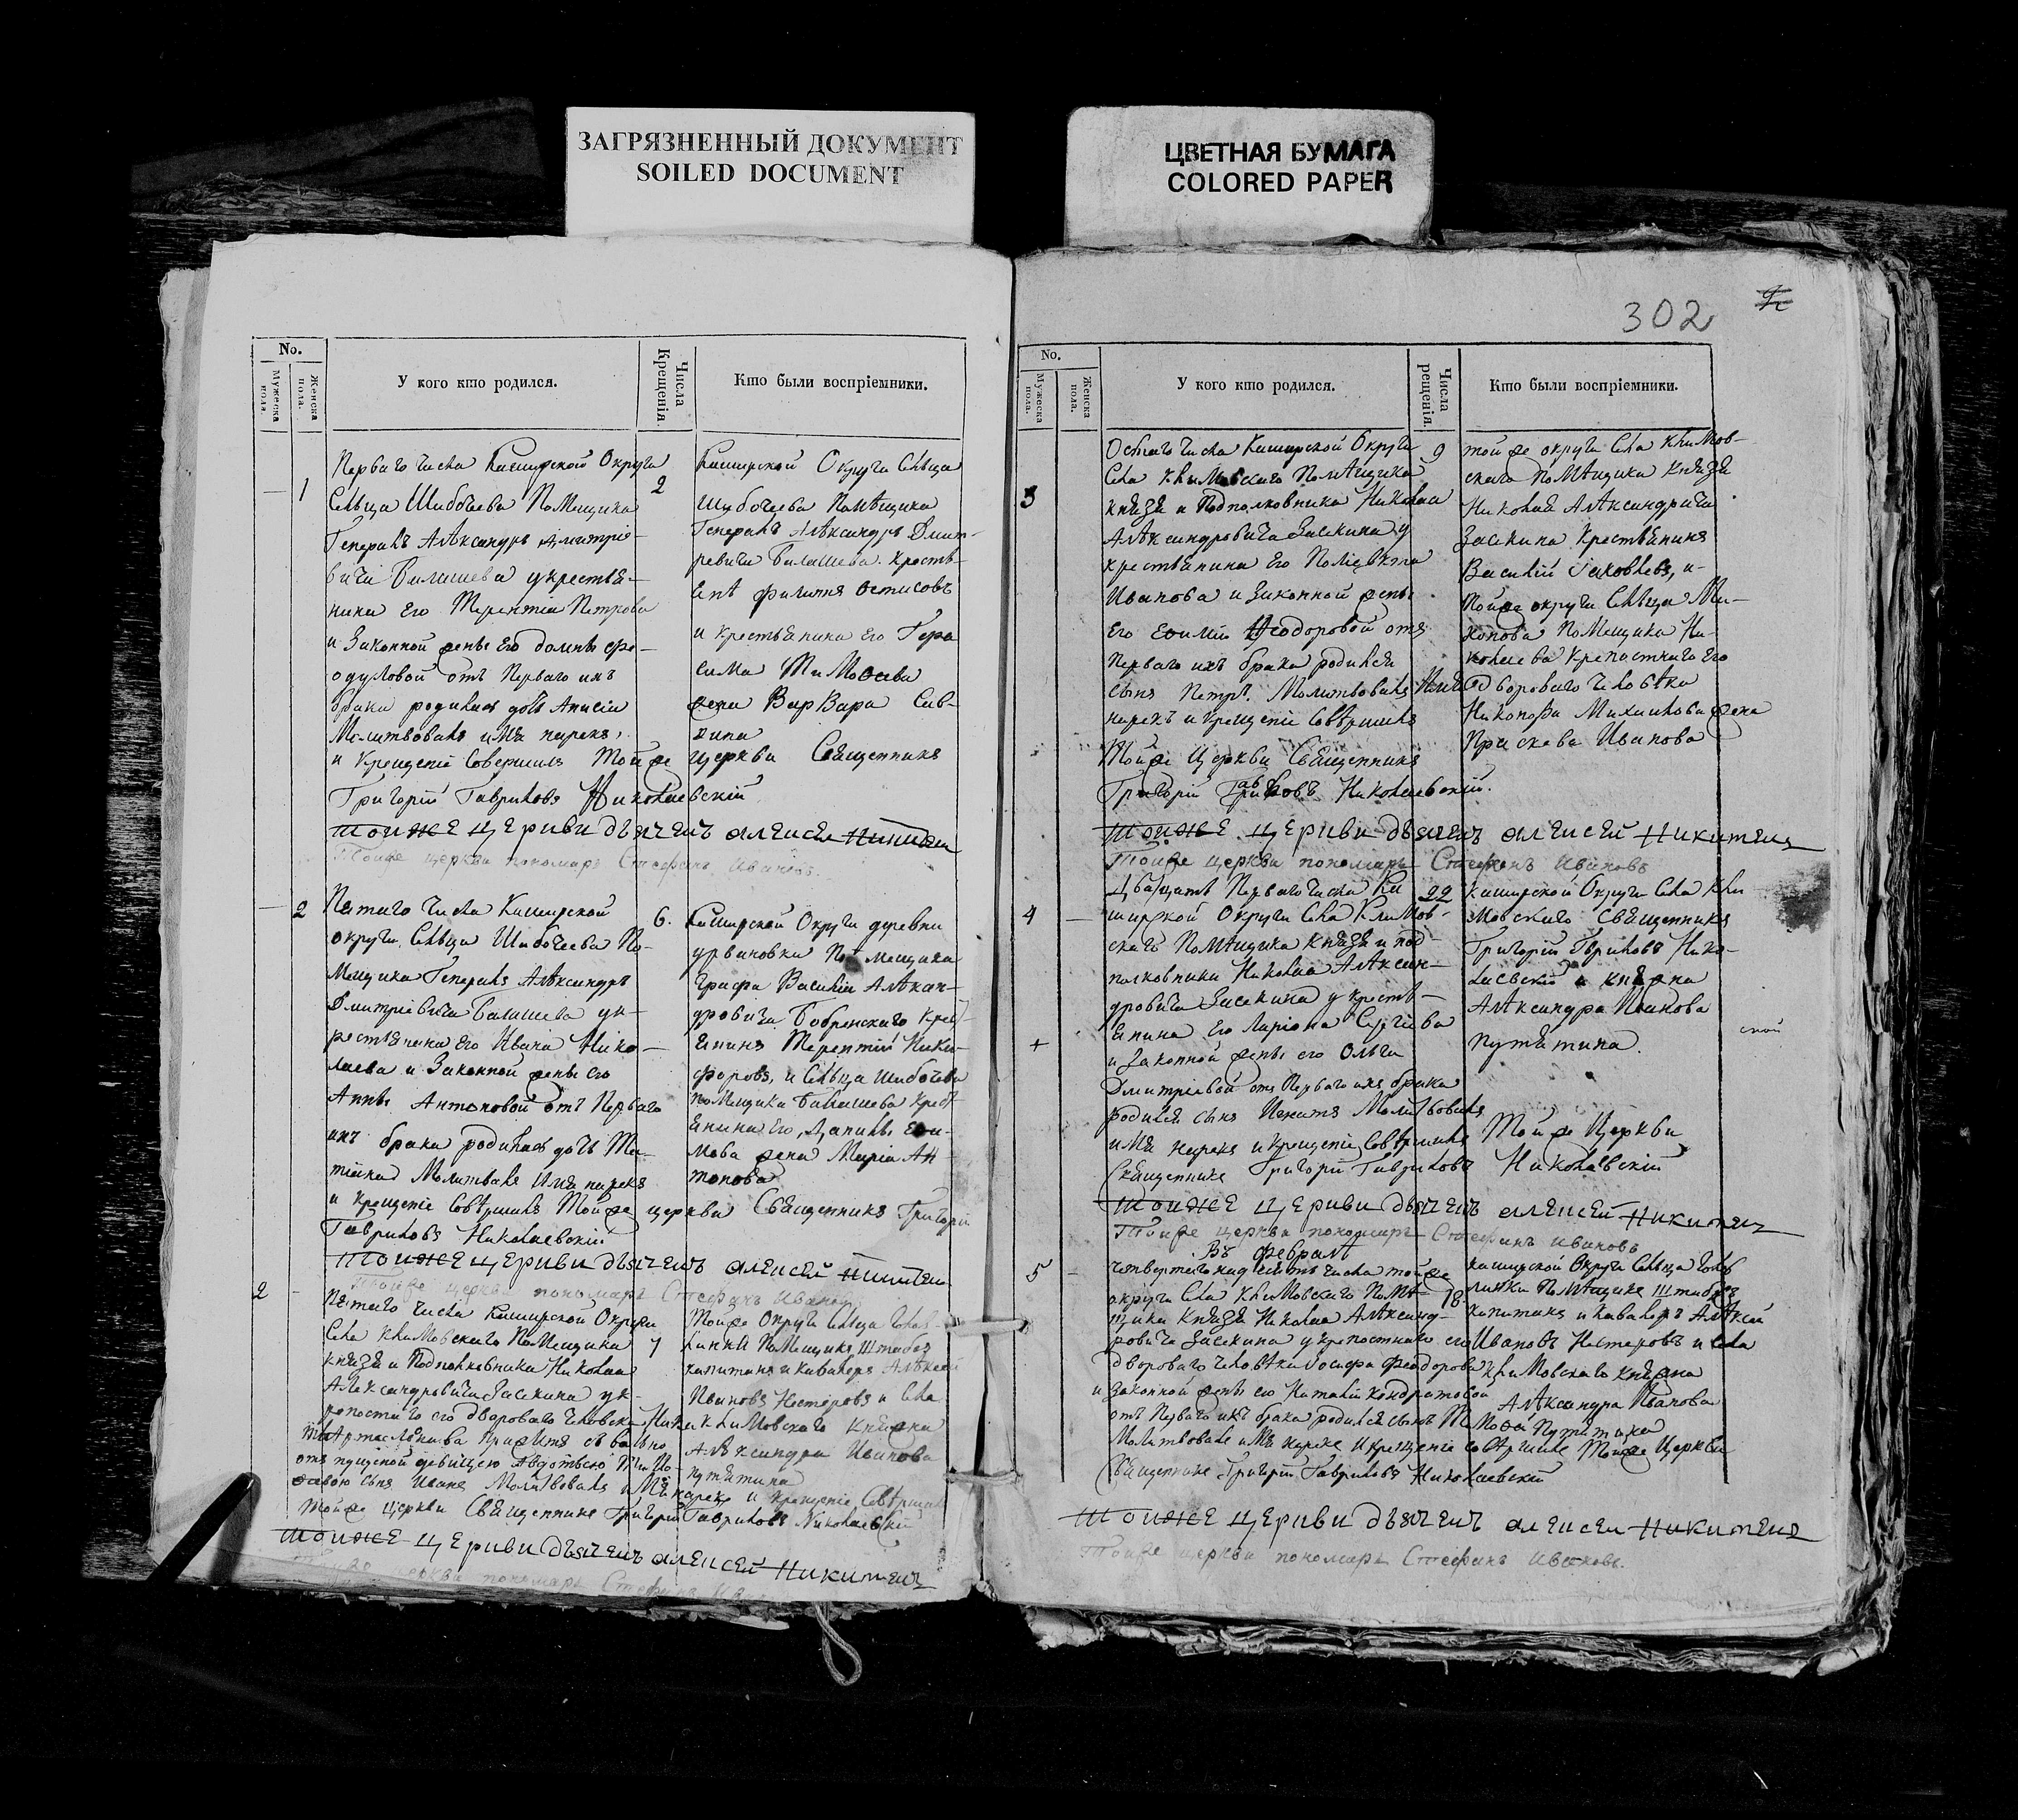 ЗАГРЯЗНЕННЫЙ ДОКУМЕНТ
SOILED DOCUMENT
ЦВЕТНАЯ БУМАГА
COLORED PAPER
302
No.
Мужеска пола.
Женска пола.
У кого кто родился.
Числа Крещенія.
Кто были воспріемники.
1
Перваго числа Каширской Округи
Сельца Шибочева Помещика
Генералъ Александръ Дмитріе-
вича Балашева у крестья-
нина Его Терентія Петрова
и Законной жены Его домны фе-
одуловой отъ Перваго ихъ
брака родилась дочь Анисія
Молитвовалъ имя нарекъ,
и Крещеніе Совершилъ Тойже церкви Священникъ
Григорій Гавриловъ Николаевскій
2
Каширской Округи Сельца
Шибочева Помѣщика
Генералъ Александръ Дмит-
ревича Балашева. крестья-
филиппъ
и крестьянина Его Гера
сима Тимофеева
жена Варвара Сав-
вина
тоиже церкви дьячекъ алексей никитин
Тойже церкви пономарь Стефанъ Ивановъ
2
Пятаго Числа Каширской
округи Сельца Шибочеева По-
мещика Генералъ Александръ
Дмитріевича Балашева у к-
рестьянина его Ивана Нико-
лаева и Законной жены его
Анны Антоновой отъ Перваго
ихъ брака родилась дочь Та-
тіана Молитвовалъ Имя нарекъ
и крещеніе Совершилъ Тойже церкви Священникъ Григорій
Гавриловъ Николаевскій
6.
Каширской Округи деревни
урвановки Помещика
Графа Василія Алексан-
дровича Бобренскаго Крест-
янинъ Терентій Ники-
форовъ, и Сельца Шибочева
помещика Балашева Крест
янина Его, Данилы Ефи-
мова жена Марія Ан-
тонова
тоиже церкви дьячекъ алексей никитин
Тойже церкви пономарь Стефанъ Иванов
2
Пятаго числа Каширской Округи
Села Климовскаго Помещика
князя и Подполковника Николая
Александровича Засекина у к-
репостнаго его двороваго человека
отпущеной девицею Авдотьею Тимо-
феевою сынъ Иванъ Молитвовалъ имя нарекъ и крещеніе Совершилъ
тойже церкви Священникъ Григорій Гавриловъ Николаевскій
7
Тойже Округи Сельца Гов-
линки Помещикъ Штабсъ
капитанъ и кавалеръ Алексей
Ивановъ Нестеровъ и Села
Климовскаго Княжна
Александра Иванова
путятина
тоиже церкви дьячекъ алексей никитинъ
Тойже церкви пономарь Стефанъ
No.
Мужеска пола.
Женска пола.
У кого кто родился.
Числа рещенія.
Кто были воспріемники.
3
Осмаго числа Каширской Округи
Села Климовскаго Помѣщика
князя и Подполковника Николая
Александровича Засекина у
крестьянина Его Поліевкта
Иванова и Законной жены
Его Ефиміи Феодоровой отъ
Перваго ихъ брака родился
сынъ Петръ. Молитвовалъ Имя
нарекъ и Крещеніе Совершилъ
Тойже Церкви Священникъ
Григорій Гавриловъ Николаевскій.
9
тойже округи Села Климов-
скаго Помѣщика Князя
Николая Александрича
Засекина Крестьянинъ
Василій Іаковлевъ, и
тойже округи Сельца Ми-
хопова Помещика Ни-
колаева Крепостнаго Его
двороваго человѣка
Михаилова жена
Праскева Иванова
тоиже церкви дьячекъ алексей никитинъ
Тойже церкви пономарь Стефанъ Ивановъ
4
Двацать Перваго числа Ка
ширской Округи Села Климов-
скагъ Помѣщика Князя и под-
полковника Николая Алексан-
дровича Засекина у крестья-
янина Его Ларіона Сергіева
и Законной жены его Ольги
Дмитріевой отъ Перваго ихъ брака
родился сынъ Игнатъ Молитвовалъ
имя нарекъ и крещеніе Совершилъ Тойже Церкви
Священникъ Григорій Гавриловъ Николаевскій
22
Каширской Округи Села Кли
мовскаго Священникъ
Григорій Гавриловъ Нико-
лаевскій и княжна
Александра Иванова
путятина.
тоиже церкви дьячекъ алексей никитин
Тойже церкви пономарь Стефанъ Ивановъ
Въ Февралѣ
5
четвертагонадесять числа тойже
округи Села Климовскаго Помѣ-
щика Князя Николая Александ-
ровича Засекина у крепостнаго его
двороваго человѣка Іосифа Феодорова
и законной жены его Наталіи Кондратовой
отъ Перваго ихъ брака родился сынъ Тимофей
Молитвовалъ имя нарекъ и крещеніе совершилъ Тойже Церкви
Священникъ Григорій Гавриловъ Николаевскій
18
каширской Округи Сельца Гов
линки Помѣщикъ Штабсъ
капитанъ и кавалеръ Алексей
Ивановъ Нестеровъ и села
Климовскаго княжна
Александра Иванова
Путятина
тоиже церкви дьячекъ алексеи никитинъ
Тойже церкви пономарь Стефанъ Ивановъ.